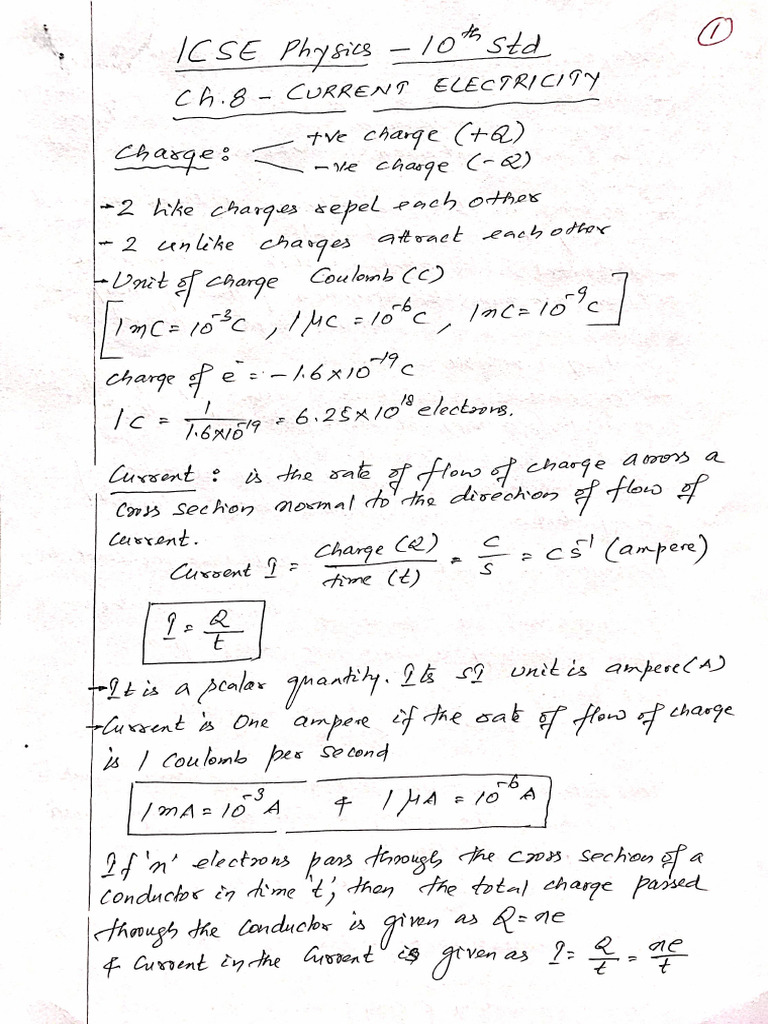 1
ICSE Physics - 10th Std
Ch.8 - CURRENT ELECTRICITY
Charge: +ve charge (+Q)
-ve charge (-Q)
→ 2 like charges repel each other
- 2 unlike charges attract each other
→ Unit of charge Coulomb (C)
[1mC = 10⁻³C , 1μC = 10⁻⁶C, 1nC = 10⁻⁹C]
charge of e⁻ = -1.6×10⁻¹⁹C
1C = 1/1.6×10⁻¹⁹ = 6.25×10¹⁸ electrons.
Current : is the rate of flow of charge across a
cross section normal to the direction of flow of
current.
Current I = Charge (Q)/time (t) = C/S = CS⁻¹ (ampere)
I = Q/t
→ It is a scalar quantity. Its SI unit is ampere (A)
→ Current is One ampere if the rate of flow of charge
is 1 coulomb per second
1mA = 10⁻³A & 1μA = 10⁻⁶A
If 'n' electrons pass through the cross section of a
conductor in time 't', then the total charge passed
through the conductor is given as Q=ne
& Current in the Current is given as I = Q/t = ne/t